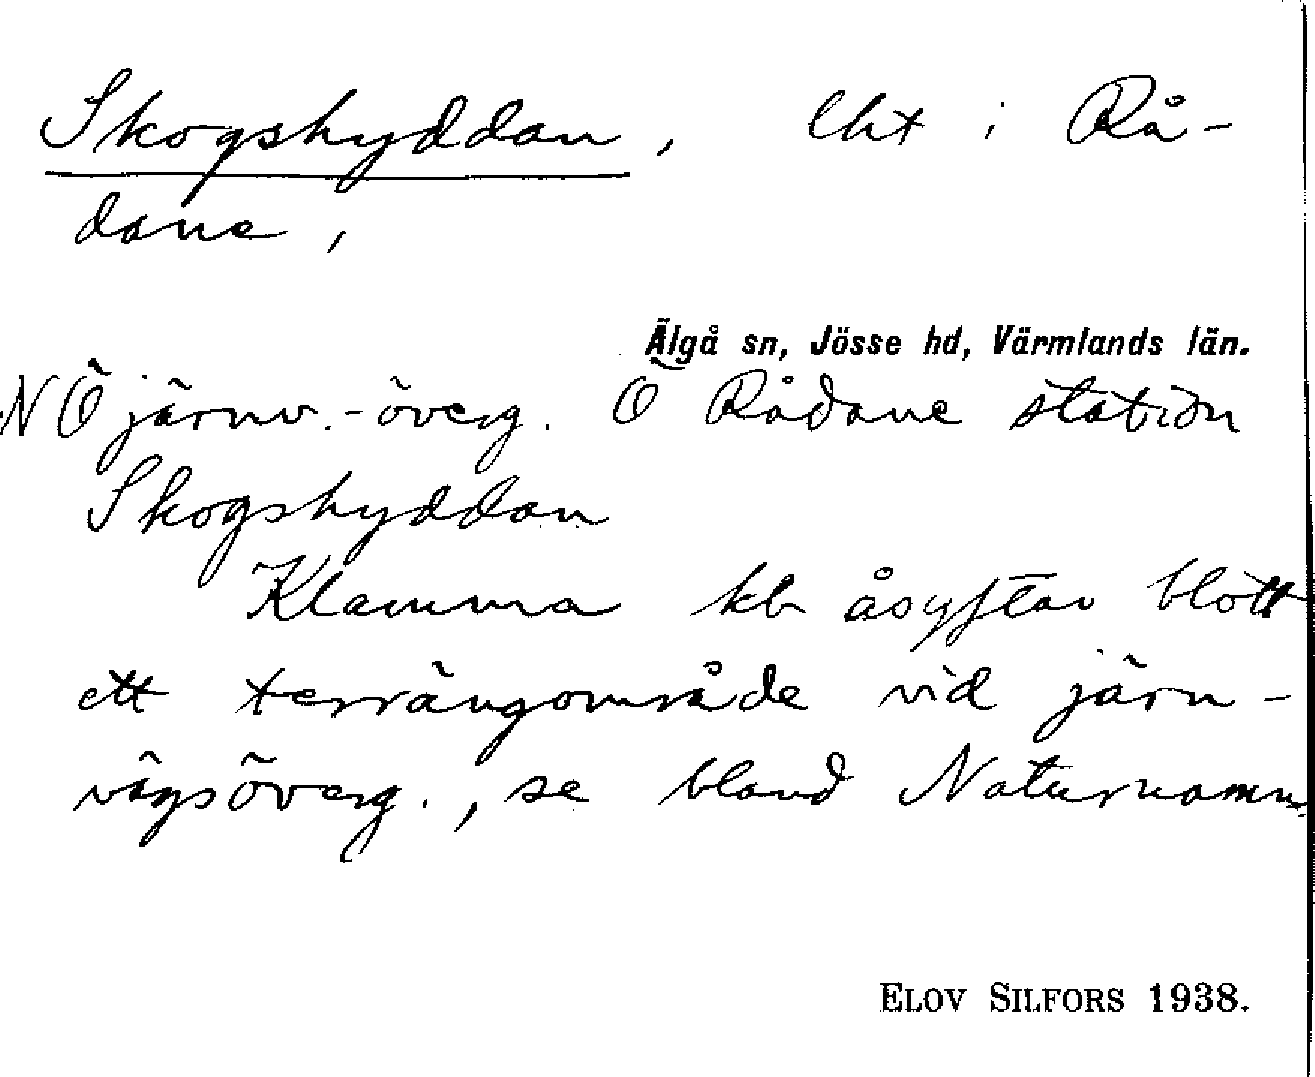 Skogshyddan, lht i Rå-
dane,
Älgå sn, Jösse hd, Värmlands län.
NÖ järnv.-överg. Ö Rådane station
Skogshyddan
Klamma kb åsyftar blott
ett terrängområde vid järn-
vägsöverg., se bland Naturnamn
ELOV SILFORS 1938.